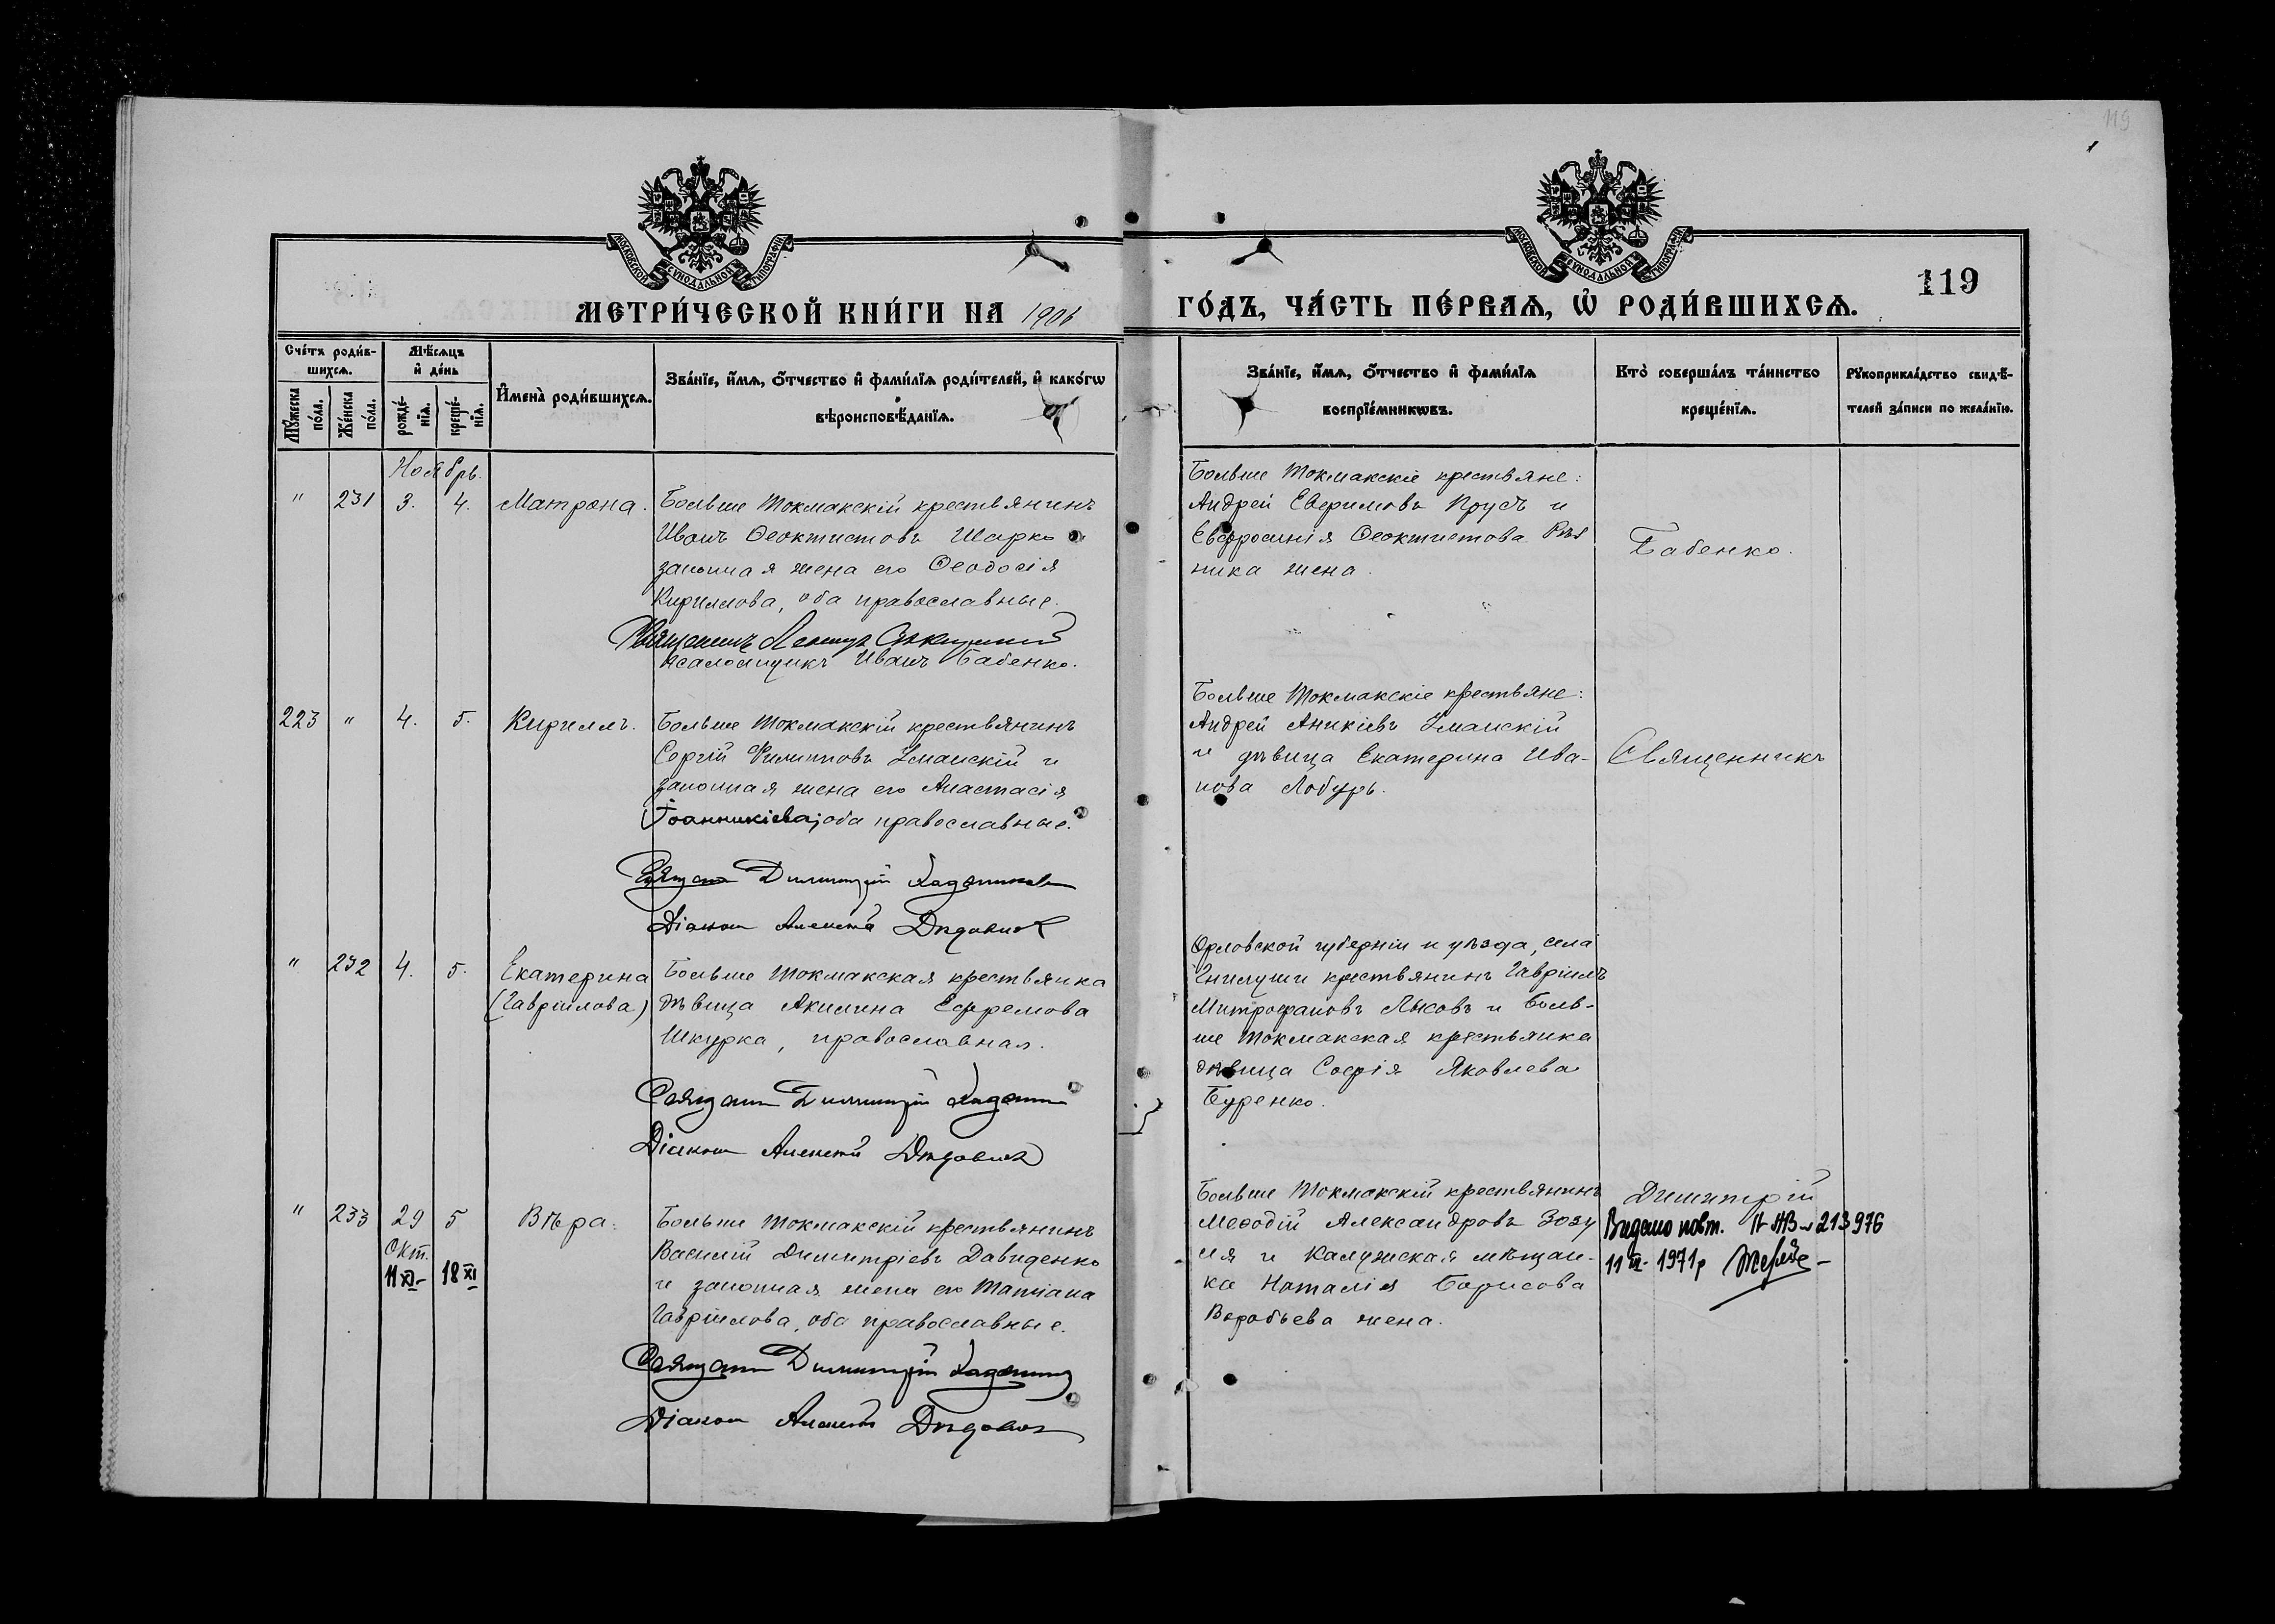 119
119
МОСКОВСКОЙ СѴНОДАЛЬНОЙ ТИПОГРАФІИ
МОСКОВСКОЙ СѴНОДАЛЬНОЙ ТИПОГРАФІИ
МЕТРИ́ЧЕСКОЙ КНИ́ГИ НА 1906
ГО́ДЪ, ЧА́СТЬ ПЕ́РВАѦ, Ѡ҆ РОДИ́ВШИХСѦ.
Сче́тъ роди́в-
шихсѧ.
Мꙋ́жеска по́ла.
Же́нска по́ла.
Мѣ́сѧцъ
и҆ де́нь
рожде́-
нїѧ.
креще́-
нїѧ.
И҆мена̀ роди́вшихсѧ.
Зва́нїе, и҆́мѧ, ѻ҆́тчество и҆ фами́лїѧ роди́телей, и҆ како́гѡ
вѣроисповѣ́данїѧ.
Зва́нїе, и҆́мѧ, ѻ҆́тчество и҆ фами́лїѧ
воспрїе́мникѡвъ.
Кто̀ соверша́лъ та́инство
креще́нїѧ.
Рꙋкоприкла́дство свидѣ́-
телей за́писи по жела́нїю.
Ноябрь.
" 231 3. 4. Матрона.
Больше Токмакскій крестьянинъ
Иванъ Ѳеоктистовъ Шарко и
законная жена его Ѳеодосія
Кириллова, оба православные.
Священникъ Леонидъ
псаломщикъ Иванъ Бабенко.
Больше Токмакскіе крестьяне:
Андрей Евфимовъ Прусъ и
Евфросинія Ѳеоктистова
ника жена.
Бабенко.
223 " 4. 5. Кириллъ.
Больше Токмакскій крестьянинъ
Сергій Филипповъ Уманскій и
законная жена его Анастасія
Іоанникіева, оба православные.
Священ Димитрій
Діакон Алексѣй
Больше Токмакскіе крестьяне:
Андрей Аникіевъ Уманскій
и дѣвица Екатерина Ива-
нова Лобурь.
Священникъ
" 232 4. 5. Екатерина
(Гавріилова)
Больше Токмакская крестьянка
дѣвица Акилина Ефремова
Шкурка, православная.
Священ Димитрій
Діакон Алексѣй
Орловской губерніи и уѣзда, села
Гнилуши крестьянинъ Гавріилъ
Митрофановъ Лысовъ и Боль-
ше Токмакская крестьянка
дѣвица Софія Яковлева
Буренко.
" 233 29 5 Вѣра.
Окт.
11 XI- 18 XI
Больше Токмакскій крестьянинъ
Василій Димитріевъ Давиденко
и законная жена его Татіана
Гавріилова, оба православные.
Священ Димитрій
Діакон Алексѣй
Больше Токмакскій крестьянинъ
Меѳодій Александровъ Зозу
ля и Калужская мѣщан-
ка Наталія Борисова
Воробьева жена.
Димитрій
Видано повт. 213976
1971р